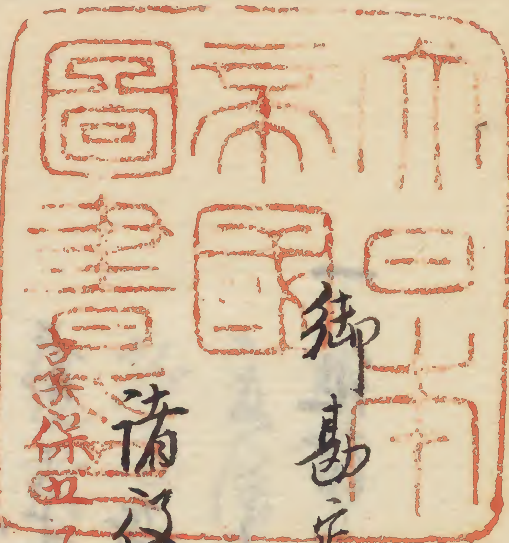 大日本
帝國
圖書印
御勘定
諸役
享保丑